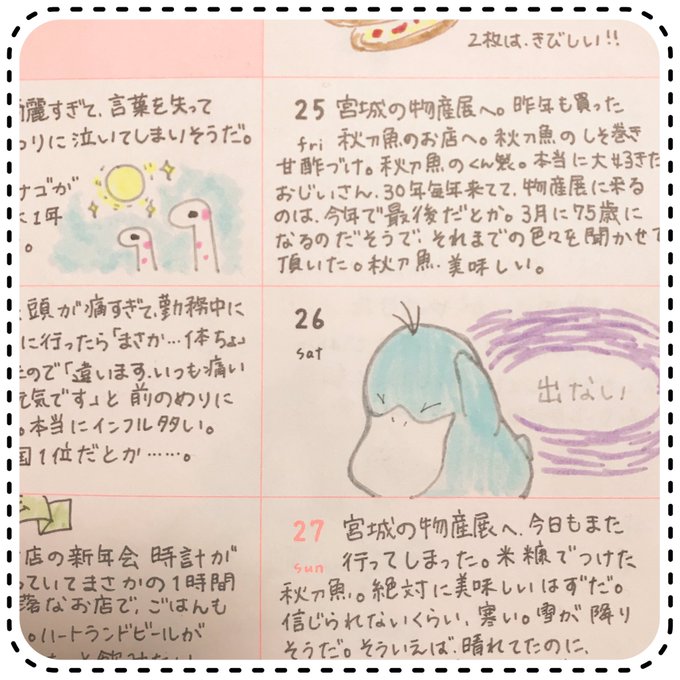 2枚は、きびしい!!
麗すぎて、言葉を失って
りに泣いてしまいそうだ。
ナゴが
1年
。
頭が痛すぎて、勤務中に
に行ったら「まさか…1体ちょ
ので「違います、いつも痛い
元気です」と前のめりに
。本当にインフル多い。
国1位だとか……。
店の新年会 時計が
っていてまさかの1時間
落なお店で、ごはんも
。ハートランドビールが
25 宮城の物産展へ。昨年も買った
fri 秋刀魚のお店へ。秋刀魚のしそ巻き
甘酢づけ。秋刀魚のくん製。本当に大好きだ
おじいさん、30年毎年来てて、物産展に来る
のは、今年で最後だとか。3月に75歳に
なるのだそうで、それまでの色々を聞かせて
頂いた。秋刀魚、美味しい。
26
sat
出ない
27 宮城の物産展へ、今日もまた
sun 行ってしまった。米糠でつけた
秋刀魚。絶対に美味しいはずだ。
信じられないくらい、寒い。雪が降り
そうだ。そういえば、晴れてたのに、